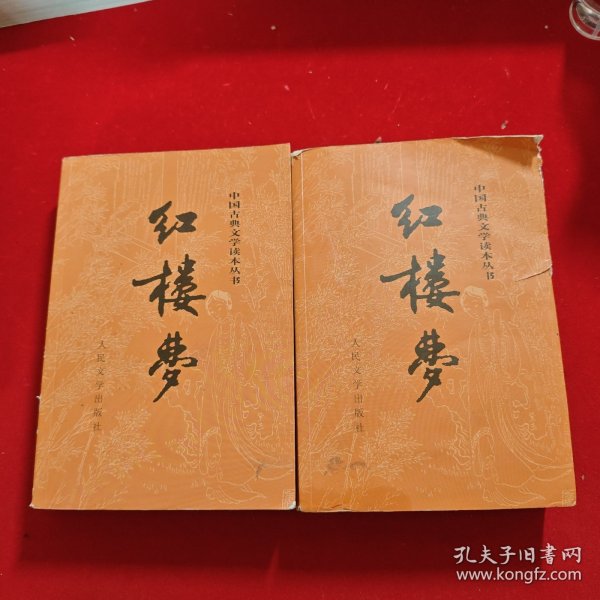 中国古典文学读本丛书
红楼梦
人民文学出版社
中国古典文学读本丛书
红楼梦
人民文学出版社
孔夫子旧书网
www.kongfz.com